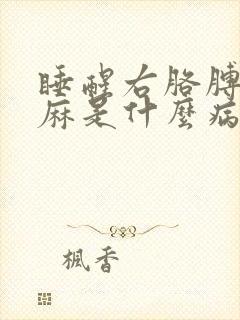 睡醒右胳膊
麻是什麼病
楓香